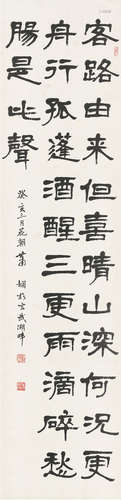 客路由来但喜晴山深何况更
舟行孤蓬酒醒三更雨滴碎愁
腸是此聲
癸亥二月花朝蕭嫻於玄武湖畔